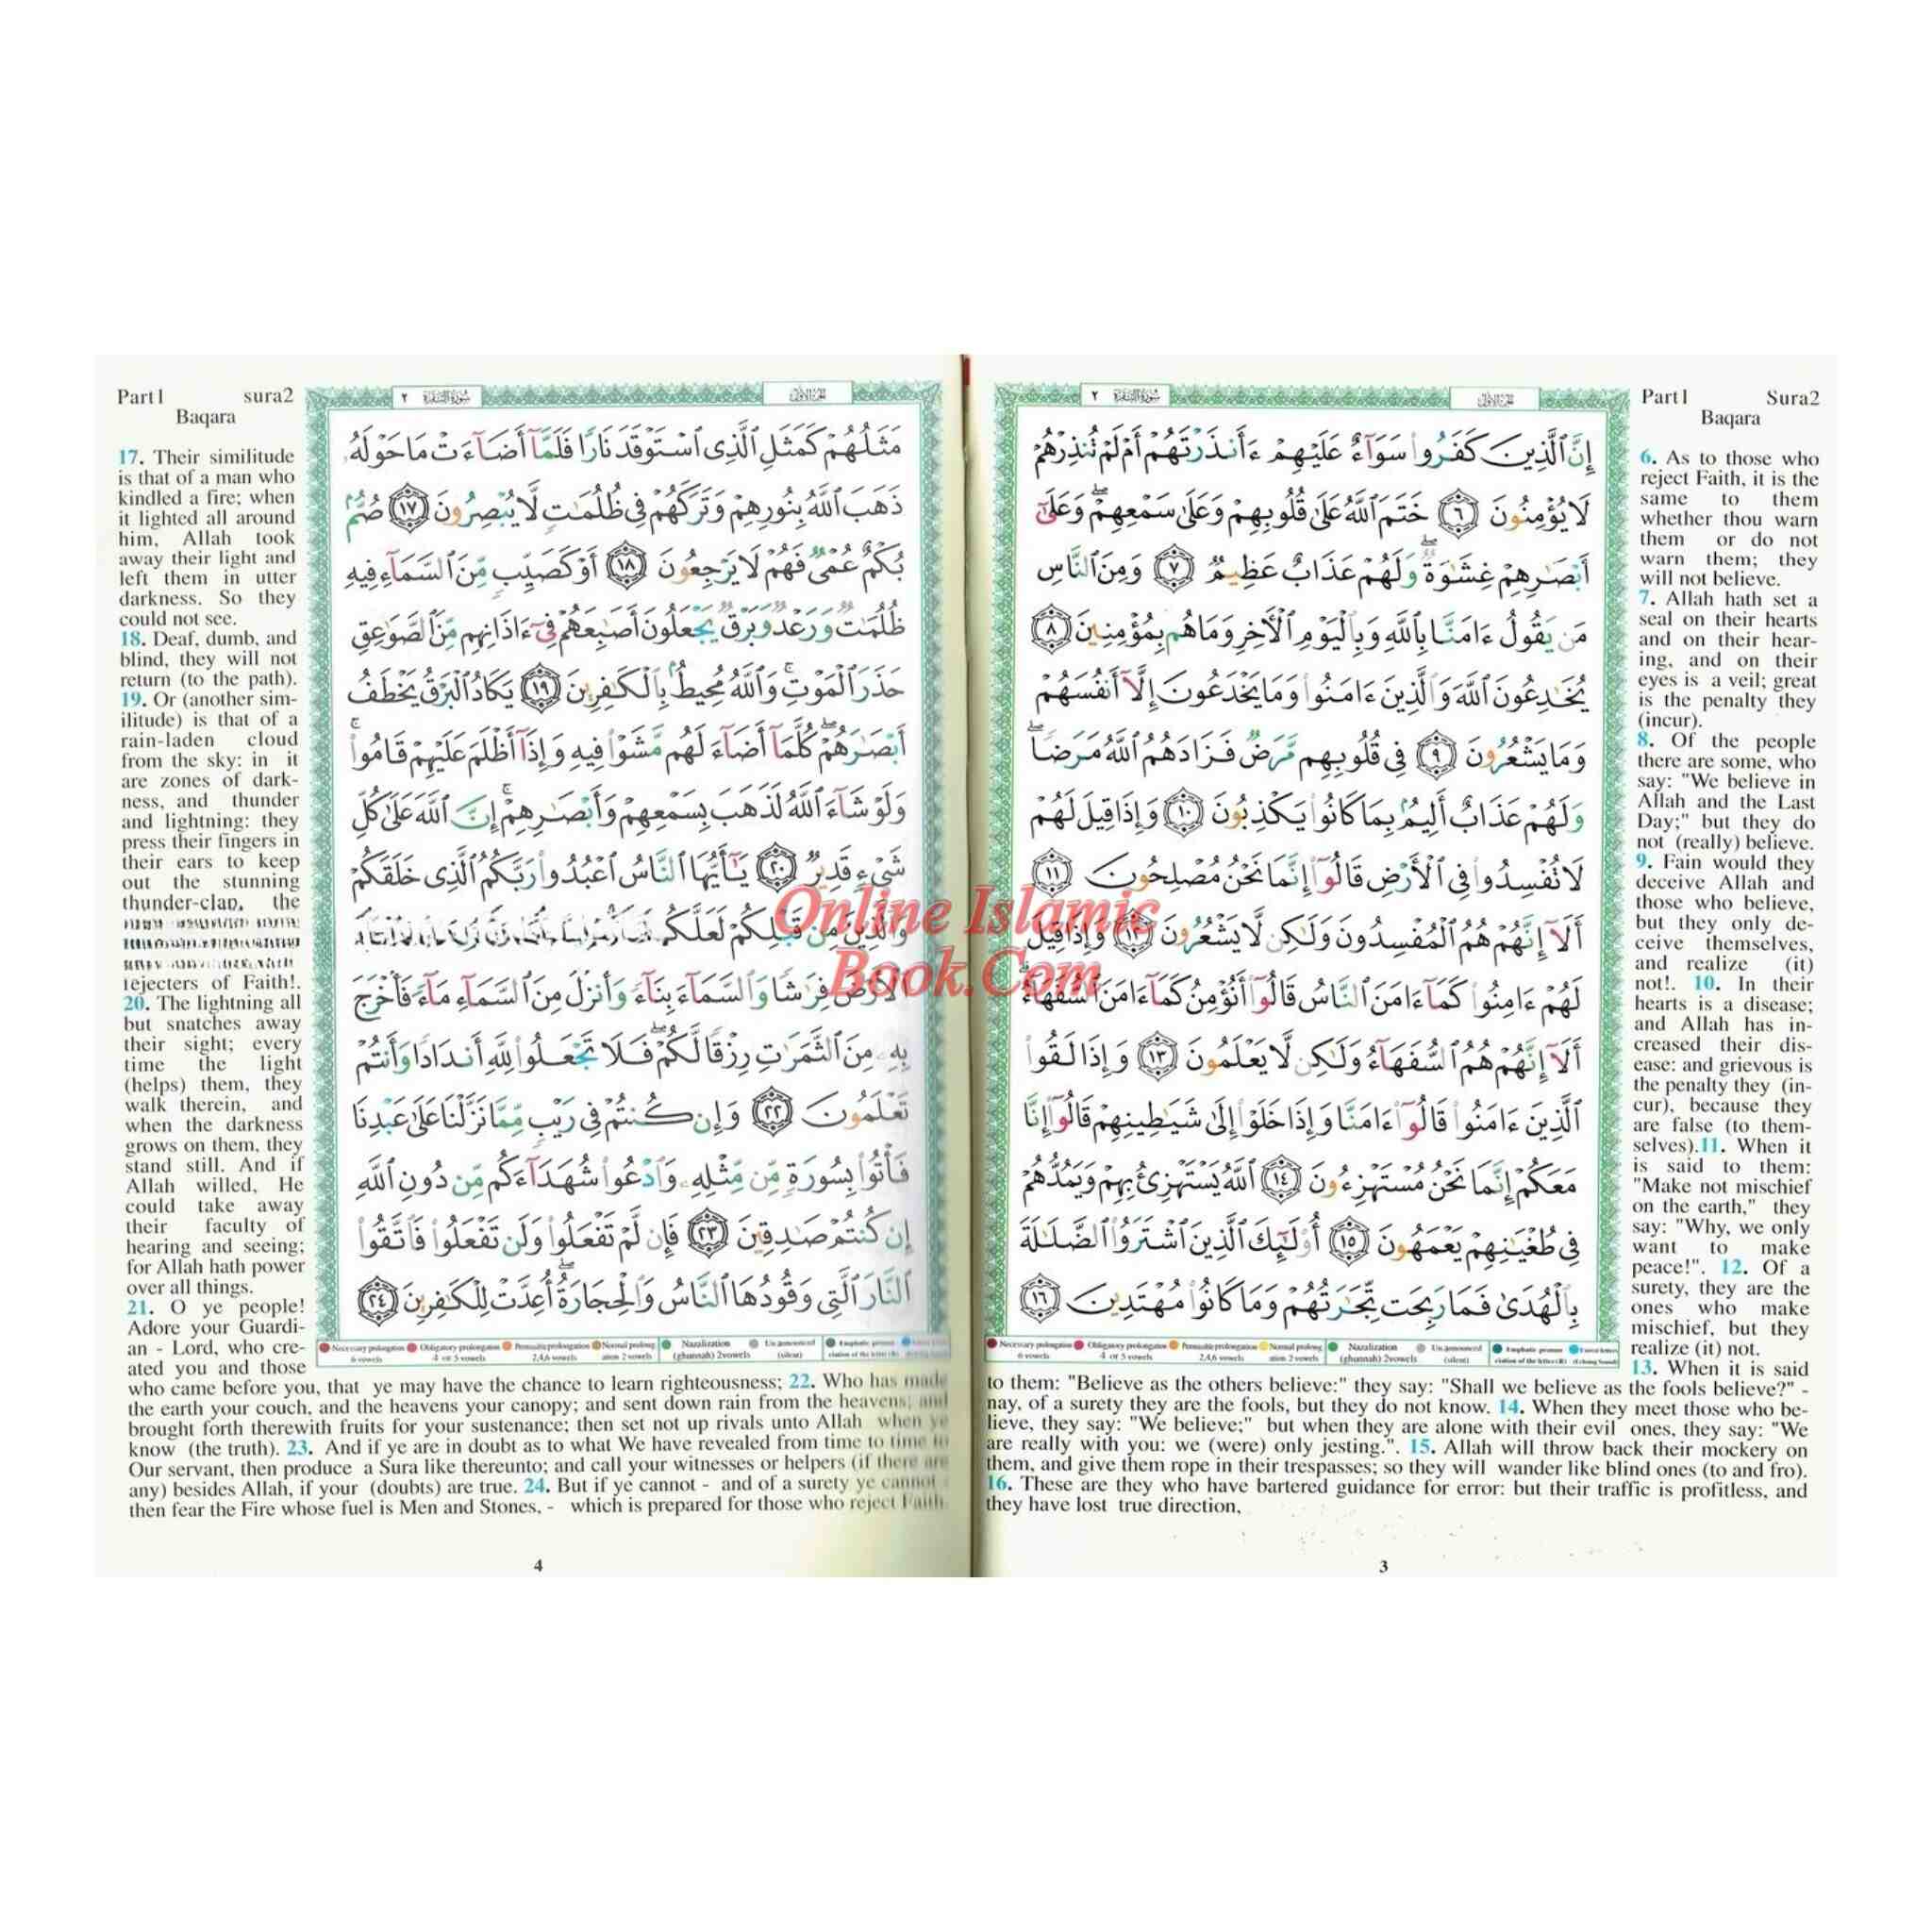 Part1 Sura2
Baqara
إِنَّ ٱلَّذِينَ كَفَرُوا۟ سَوَآءٌ عَلَيْهِمْ ءَأَنذَرْتَهُمْ أَمْ لَمْ تُنذِرْهُمْ
لَا يُؤْمِنُونَ ٦ خَتَمَ ٱللَّهُ عَلَىٰ قُلُوبِهِمْ وَعَلَىٰ سَمْعِهِمْ ۖ وَعَلَىٰٓ
أَبْصَٰرِهِمْ غِشَٰوَةٌ ۖ وَلَهُمْ عَذَابٌ عَظِيمٌ ٧ وَمِنَ ٱلنَّاسِ
مَن يَقُولُ ءَامَنَّا بِٱللَّهِ وَبِٱلْيَوْمِ ٱلْأَخِرِ وَمَا هُم بِمُؤْمِنِينَ ٨
يُخَٰدِعُونَ ٱللَّهَ وَٱلَّذِينَ ءَامَنُوا۟ وَمَا يَخْدَعُونَ إِلَّآ أَنفُسَهُمْ
وَمَا يَشْعُرُونَ ٩ فِى قُلُوبِهِم مَّرَضٌ فَزَادَهُمُ ٱللَّهُ مَرَضًا ۖ
وَلَهُمْ عَذَابٌ أَلِيمٌۢ بِمَا كَانُوا۟ يَكْذِبُونَ ١٠ وَإِذَا قِيلَ لَهُمْ
لَا تُفْسِدُوا۟ فِى ٱلْأَرْضِ قَالُوٓا۟ إِنَّمَا نَحْنُ مُصْلِحُونَ ١١
أَلَآ إِنَّهُمْ هُمُ ٱلْمُفْسِدُونَ وَلَٰكِن لَّا يَشْعُرُونَ ١٢ وَإِذَا قِيلَ
لَهُمْ ءَامِنُوا۟ كَمَآ ءَامَنَ ٱلنَّاسُ قَالُوٓا۟ أَنُؤْمِنُ كَمَآ ءَامَنَ ٱلسُّفَهَآءُ ۗ
أَلَآ إِنَّهُمْ هُمُ ٱلسُّفَهَآءُ وَلَٰكِن لَّا يَعْلَمُونَ ١٣ وَإِذَا لَقُوا۟
ٱلَّذِينَ ءَامَنُوا۟ قَالُوٓا۟ ءَامَنَّا وَإِذَا خَلَوْا۟ إِلَىٰ شَيَٰطِينِهِمْ قَالُوٓا۟ إِنَّا
مَعَكُمْ إِنَّمَا نَحْنُ مُسْتَهْزِءُونَ ١٤ ٱللَّهُ يَسْتَهْزِئُ بِهِمْ وَيَمُدُّهُمْ
فِى طُغْيَٰنِهِمْ يَعْمَهُونَ ١٥ أُو۟لَٰٓئِكَ ٱلَّذِينَ ٱشْتَرَوُا۟ ٱلضَّلَٰلَةَ
بِٱلْهُدَىٰ فَمَا رَبِحَت تِّجَٰرَتُهُمْ وَمَا كَانُوا۟ مُهْتَدِينَ ١٦
6. As to those who
reject Faith, it is the
same to them
whether thou warn
them or do not
warn them; they
will not believe.
7. Allah hath set a
seal on their hearts
and on their hear-
ing, and on their
eyes is a veil; great
is the penalty they
(incur).
8. Of the people
there are some, who
say: "We believe in
Allah and the Last
Day;" but they do
not (really) believe.
9. Fain would they
deceive Allah and
those who believe,
but they only de-
ceive themselves,
and realize (it)
not!. 10. In their
hearts is a disease;
and Allah has in-
creased their dis-
ease: and grievous is
the penalty they (in-
cur), because they
are false (to them-
selves).11. When it
is said to them:
"Make not mischief
on the earth," they
say: "Why, we only
want to make
peace!". 12. Of a
surety, they are the
ones who make
mischief, but they
realize (it) not.
13. When it is said
to them: "Believe as the others believe:" they say: "Shall we believe as the fools believe?" -
nay, of a surety they are the fools, but they do not know. 14. When they meet those who be-
lieve, they say: "We believe;" but when they are alone with their evil ones, they say: "We
are really with you: we (were) only jesting.". 15. Allah will throw back their mockery on
them, and give them rope in their trespasses; so they will wander like blind ones (to and fro).
16. These are they who have bartered guidance for error: but their traffic is profitless, and
they have lost true direction,
Necessary prolongation 6 vowels Obligatory prolongation 4 or 5 vowels Permissible prolongation 2,4,6 vowels Normal prolongation 2 vowels Nazalization (ghunnah) 2vowels Un announced (silent)
3
Part1 sura2
Baqara
مَثَلُهُمْ كَمَثَلِ ٱلَّذِى ٱسْتَوْقَدَ نَارًا فَلَمَّآ أَضَآءَتْ مَا حَوْلَهُۥ
ذَهَبَ ٱللَّهُ بِنُورِهِمْ وَتَرَكَهُمْ فِى ظُلُمَٰتٍ لَّا يُبْصِرُونَ ١٧ صُمٌّۢ
بُكْمٌ عُمْىٌ فَهُمْ لَا يَرْجِعُونَ ١٨ أَوْ كَصَيِّبٍ مِّنَ ٱلسَّمَآءِ فِيهِ
ظُلُمَٰتٌ وَرَعْدٌ وَبَرْقٌ يَجْعَلُونَ أَصَٰبِعَهُمْ فِىٓ ءَاذَانِهِم مِّنَ ٱلصَّوَٰعِقِ
حَذَرَ ٱلْمَوْتِ ۚ وَٱللَّهُ مُحِيطٌۢ بِٱلْكَٰفِرِينَ ١٩ يَكَادُ ٱلْبَرْقُ يَخْطَفُ
أَبْصَٰرَهُمْ ۖ كُلَّمَآ أَضَآءَ لَهُم مَّشَوْا۟ فِيهِ وَإِذَآ أَظْلَمَ عَلَيْهِمْ قَامُوا۟ ۚ
وَلَوْ شَآءَ ٱللَّهُ لَذَهَبَ بِسَمْعِهِمْ وَأَبْصَٰرِهِمْ ۚ إِنَّ ٱللَّهَ عَلَىٰ كُلِّ
شَىْءٍ قَدِيرٌ ٢٠ يَٰٓأَيُّهَا ٱلنَّاسُ ٱعْبُدُوا۟ رَبَّكُمُ ٱلَّذِى خَلَقَكُمْ
وَٱلَّذِينَ مِن قَبْلِكُمْ لَعَلَّكُمْ
ٱلْأَرْضَ فِرَٰشًا وَٱلسَّمَآءَ بِنَآءً وَأَنزَلَ مِنَ ٱلسَّمَآءِ مَآءً فَأَخْرَجَ
بِهِۦ مِنَ ٱلثَّمَرَٰتِ رِزْقًا لَّكُمْ ۖ فَلَا تَجْعَلُوا۟ لِلَّهِ أَندَادًا وَأَنتُمْ
تَعْلَمُونَ ٢٢ وَإِن كُنتُمْ فِى رَيْبٍ مِّمَّا نَزَّلْنَا عَلَىٰ عَبْدِنَا
فَأْتُوا۟ بِسُورَةٍ مِّن مِّثْلِهِۦ وَٱدْعُوا۟ شُهَدَآءَكُم مِّن دُونِ ٱللَّهِ
إِن كُنتُمْ صَٰدِقِينَ ٢٣ فَإِن لَّمْ تَفْعَلُوا۟ وَلَن تَفْعَلُوا۟ فَٱتَّقُوا۟
ٱلنَّارَ ٱلَّتِى وَقُودُهَا ٱلنَّاسُ وَٱلْحِجَارَةُ ۖ أُعِدَّتْ لِلْكَٰفِرِينَ ٢٤
17. Their similitude
is that of a man who
kindled a fire; when
it lighted all around
him, Allah took
away their light and
left them in utter
darkness. So they
could not see.
18. Deaf, dumb, and
blind, they will not
return (to the path).
19. Or (another sim-
ilitude) is that of a
rain-laden cloud
from the sky: in it
are zones of dark-
ness, and thunder
and lightning: they
press their fingers in
their ears to keep
out the stunning
thunder-clap, the
rejecters of Faith!.
20. The lightning all
but snatches away
their sight; every
time the light
(helps) them, they
walk therein, and
when the darkness
grows on them, they
stand still. And if
Allah willed, He
could take away
their faculty of
hearing and seeing;
for Allah hath power
over all things.
21. O ye people!
Adore your Guardi-
an - Lord, who cre-
ated you and those
who came before you, that ye may have the chance to learn righteousness; 22. Who has made
the earth your couch, and the heavens your canopy; and sent down rain from the heavens; and
brought forth therewith fruits for your sustenance; then set not up rivals unto Allah when ye
know (the truth). 23. And if ye are in doubt as to what We have revealed from time to time to
Our servant, then produce a Sura like thereunto; and call your witnesses or helpers (if there are
any) besides Allah, if your (doubts) are true. 24. But if ye cannot - and of a surety ye cannot
then fear the Fire whose fuel is Men and Stones, - which is prepared for those who reject Faith
4
Online Islamic
Book.Com